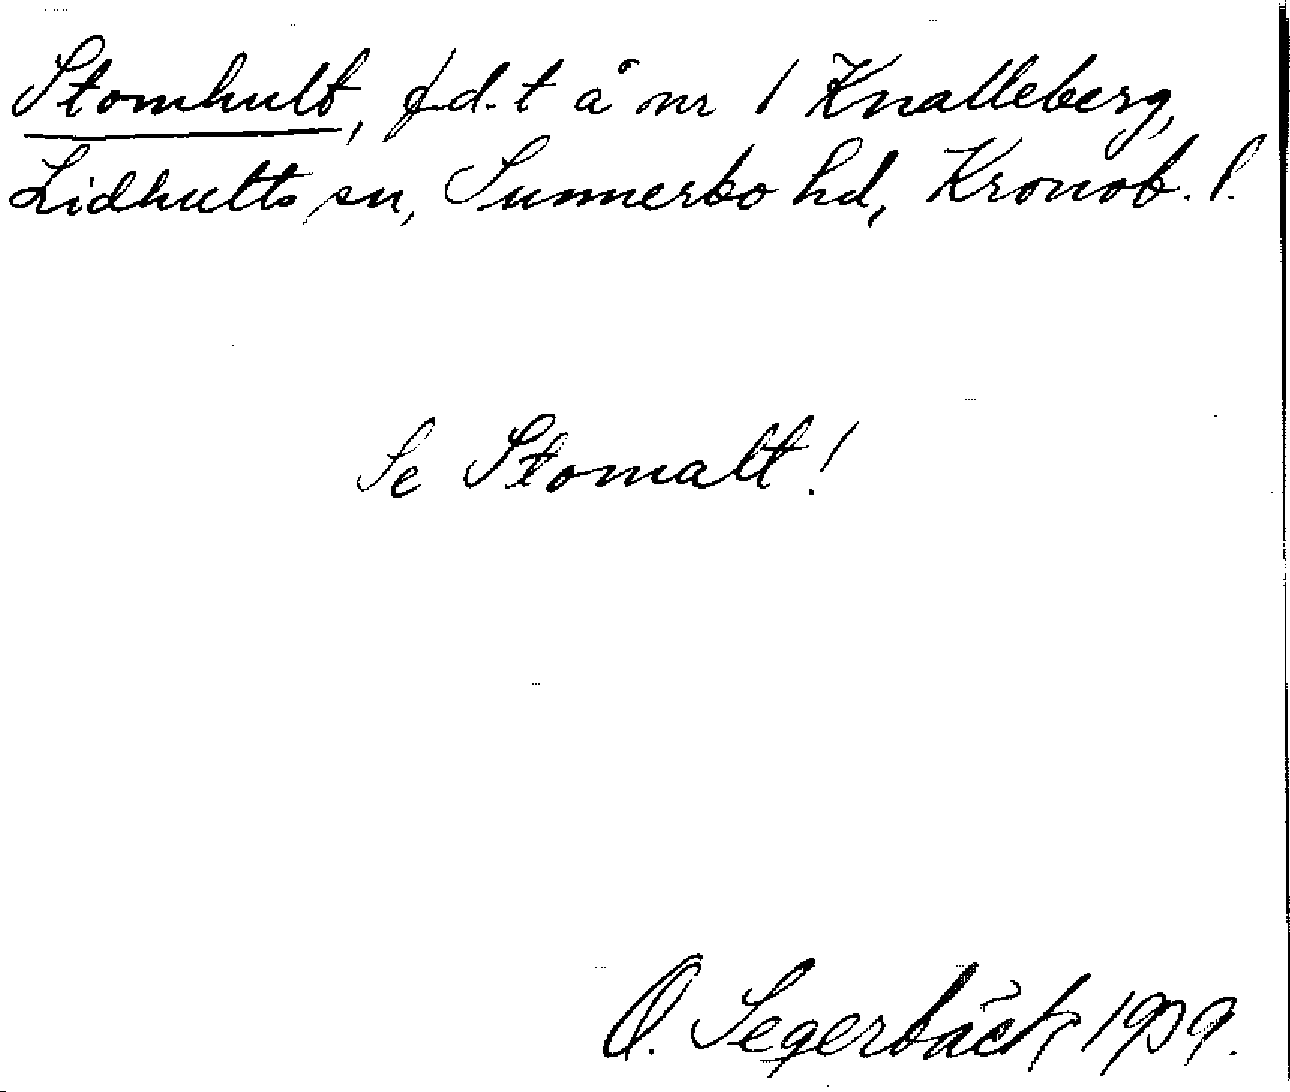 Stomhult, f.d. t å nr 1 Knalleberg,
Lidhults sn, Sunnerbo hd, Kronob. l.
Se Stomalt!
O. Segerbäck 1939.